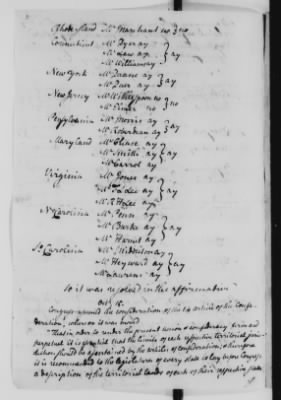 Rhode Island Mr Marchant no } no
Connecticut Mr Dyer ay
Mr Law ay } ay
Mr Williams ay
New York Mr Duane ay
Mr Duer ay } ay
New Jersey Mr Witherspoon no
Mr Elmer no } no
Pensylvania Mr Morris ay
Mr Roberdeau ay } ay
Maryland Mr Chase ay
Mr Smith ay } ay
Mr Carrol ay
Virginia Mr Jones ay
Mr F Lee ay } ay
Mr R H Lee ay
N Carolina Mr Penn ay
Mr Burke ay } ay
Mr Harnet ay
So Carolina Mr Middleton ay
Mr Heyward ay } ay
Mr Laurens ay
so it was resolved in the affirmative
Oct 15.
Congress resumed the consideration of the articles of Confe-
deration, whereon it was moved
"That in order to render the present union & confederacy firm and
perpetual it is essential that the limits of each respective territorial juris-
diction should be ascertained by the articles of confederation; & therefore
it is recommended to the legislatures of every state to lay before Congress
a description of the territorial lands of each of their respective states